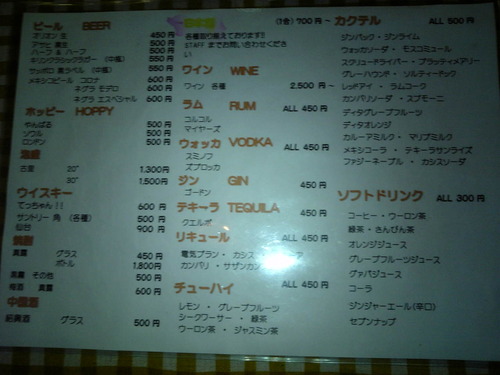 ビール BEER
オリオン 生 450円
アサヒ 黒生 500円
ハーフ & ハーフ 500円
キリンクラシックラガー (中瓶) 550円
サッポロ 黒ラベル (中瓶) 550円
メキシコビール コロナ 600円
ネグラ モデロ 600円
ネグラ エスペシャル 600円
ホッピー HOPPY
やんばる 500円
ソウル 500円
ロンドン 500円
泡盛
古里 20° 1,300円
30° 1,500円
ウイスキー
てっちゃん!! 600円
サントリー 角 (各種) 500円
仙台 900円
焼酎
真露 グラス 450円
ボトル 1,800円
黒霧 その他 500円
梅酒 真露 600円
中国酒
紹興酒 グラス 500円
日本酒 (1合) 700円~
各種取り揃えております!!
STAFF までお問い合わせください
ワイン WINE
ワイン 各種 2,500円~
ラム RUM ALL 450円
コルコル
マイヤーズ
ウォッカ VODKA ALL 450円
スミノフ
ズブロッカ
ジン GIN 450円
ゴードン
テキーラ TEQUILA 450円
クエルボ
リキュール ALL 450円
電気ブラン・カシス
カンパリ・サザンカン
チューハイ ALL 450円
レモン・グレープフルーツ
シークワーサー・緑茶
ウーロン茶・ジャスミン茶
カクテル ALL 500円
ジンバック・ジンライム
ウォッカソーダ・モスコミュール
スクリュードライバー・ブラッディメアリー
グレーハウンド・ソルティードック
レッドアイ・ラムコーク
カンパリソーダ・スプモーニ
ディタグレープフルーツ
ディタオレンジ
カルーアミルク・マリブミルク
メキシコーラ・テキーラサンライズ
ファジーネーブル・カシスソーダ
ソフトドリンク ALL 300円
コーヒー・ウーロン茶
緑茶・さんぴん茶
オレンジジュース
グレープフルーツジュース
グァバジュース
コーラ
ジンジャーエール(辛口)
セブンナップ